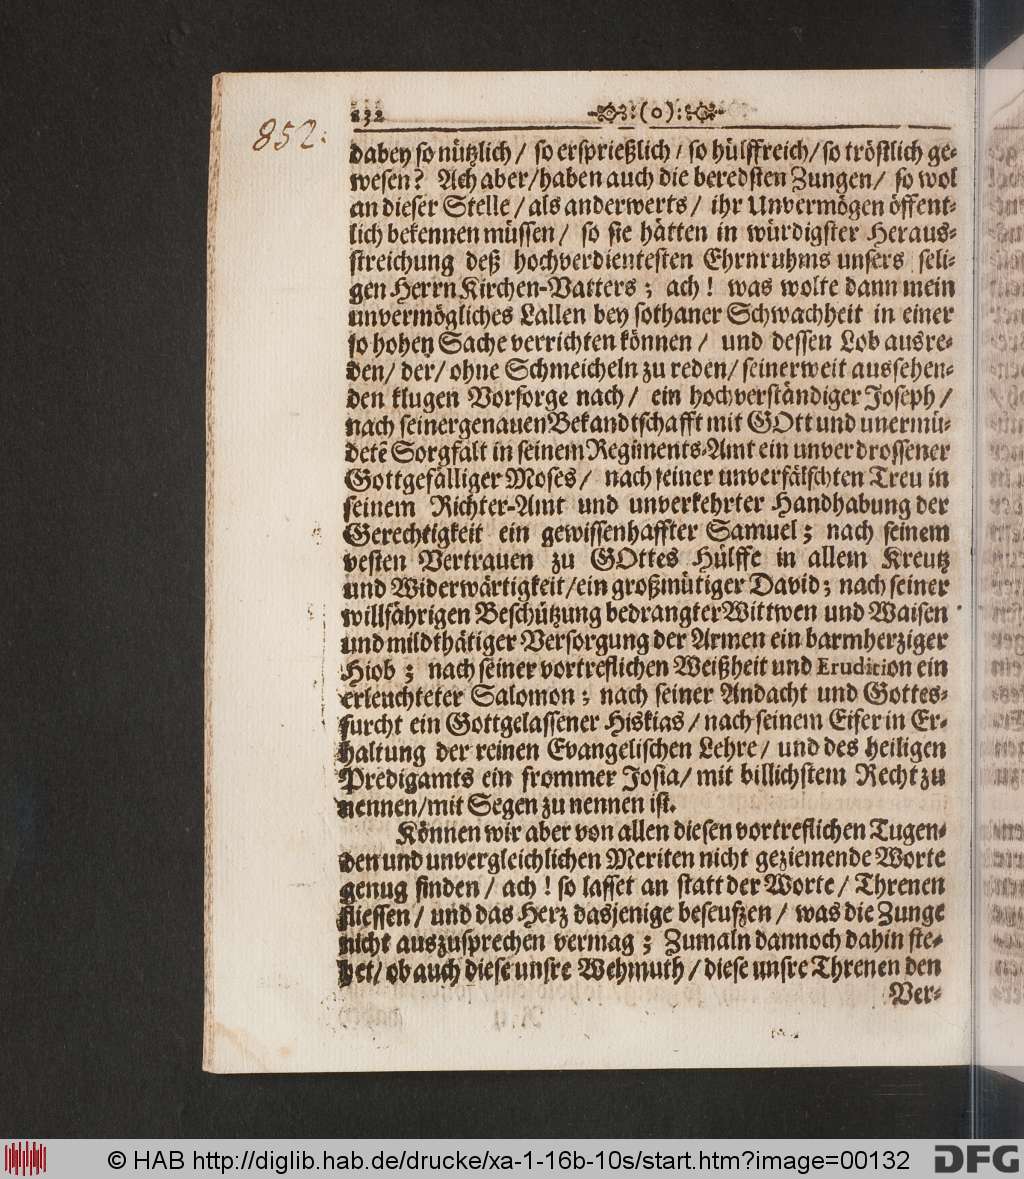 852.
132 (o):
dabey so nützlich / so ersprießlich / so hülffreich / so tröstlich ge-
wesen? Ach aber / haben auch die beredsten Zungen / so wol
an dieser Stelle / als anderwerts / ihr Unvermögen öffent-
lich bekennen müssen / so sie hätten in würdigster Heraus-
streichung deß hochverdientesten Ehrnruhms unsers seli-
gen Herrn Kirchen-Vatters; ach! was wolte dann mein
unvermögliches Lallen bey sothaner Schwachheit in einer
so hohen Sache verrichten können / und dessen Lob ausre-
den / der / ohne Schmeicheln zu reden / seiner weit aussehen-
den klugen Vorsorge nach / ein hochverständiger Joseph /
nach seiner genauen Bekandtschafft mit GOtt und unermü-
detẽ Sorgfalt in seinem Regiments-Amt ein unverdrossener
Gottgefälliger Moses / nach seiner unverfälschten Treu in
seinem Richter-Amt und unverkehrter Handhabung der
Gerechtigkeit ein gewissenhaffter Samuel; nach seinem
vesten Vertrauen zu GOttes Hülffe in allem Kreutz
und Widerwärtigkeit / ein großmütiger David; nach seiner
willfährigen Beschützung bedrangter Wittwen und Waisen
und mildthätiger Versorgung der Armen ein barmherziger
Hiob; nach seiner vortreflichen Weißheit und Erudition ein
erleuchteter Salomon; nach seiner Andacht und Gottes-
furcht ein Gottgelassener Hiskias / nach seinem Eifer in Er-
haltung der reinen Evangelischen Lehre / und des heiligen
Predigamts ein frommer Josia / mit billichstem Recht zu
nennen / mit Segen zu nennen ist.
Können wir aber von allen diesen vortreflichen Tugen-
den und unvergleichlichen Meriten nicht geziemende Worte
genug finden / ach! so lasset an statt der Worte / Threnen
fliessen / und das Herz dasjenige beseufzen / was die Zunge
nicht auszusprechen vermag; Zumaln dannoch dahin ste-
het / ob auch diese unsre Wehmuth / diese unsre Threnen den
Ver-
© HAB http://diglib.hab.de/drucke/xa-1-16b-10s/start.htm?image=00132
DFG